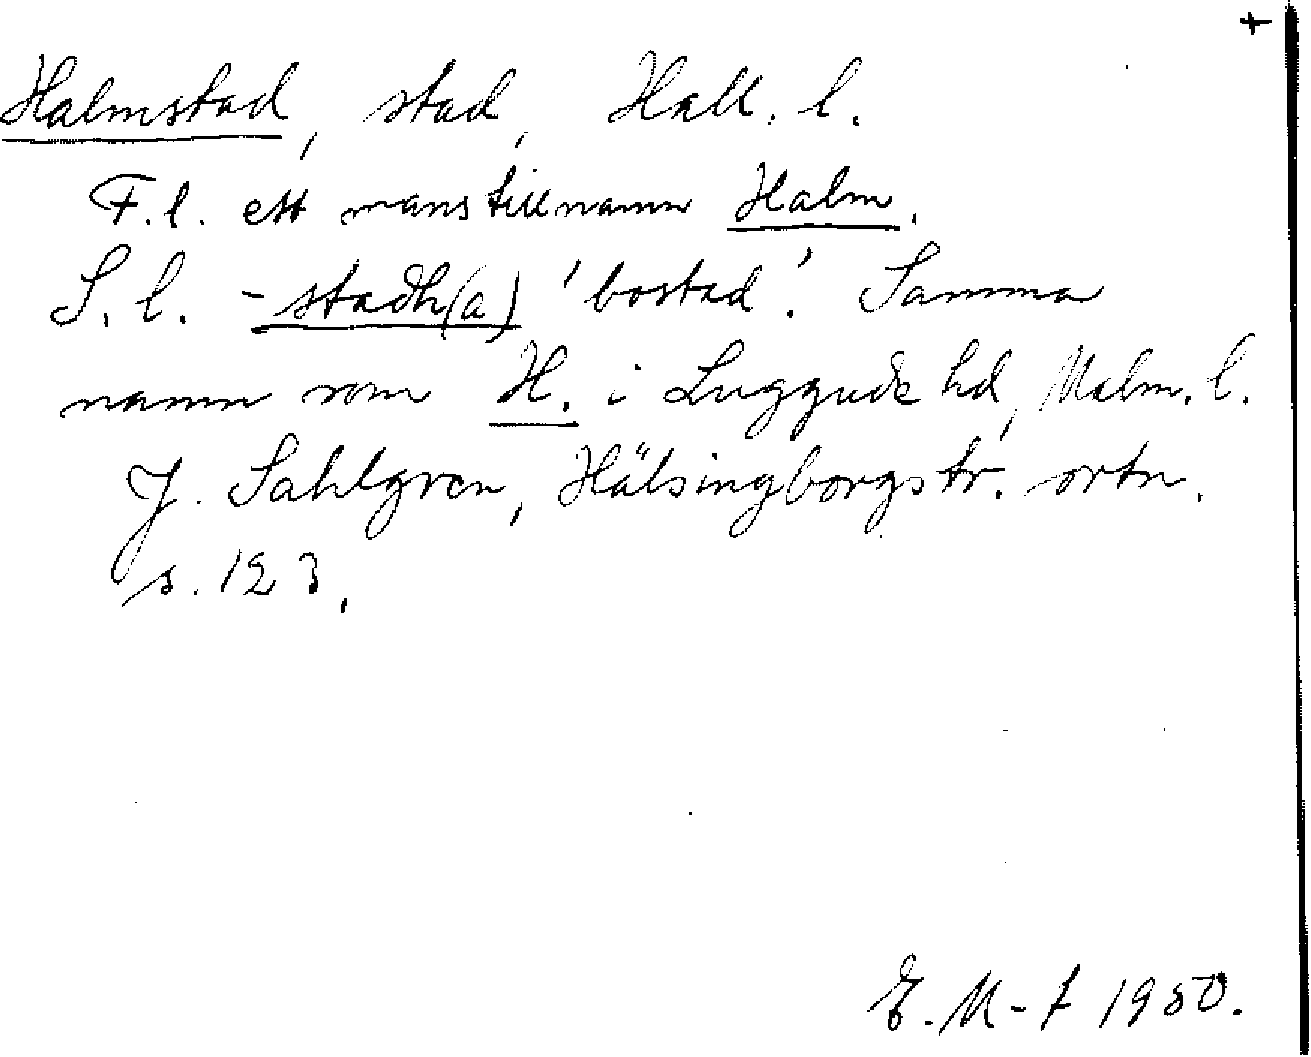 +
Halmstad, stad, Hall. l.
F.l. ett manstillnamn Halm.
S.l. -stadh(a) 'bostad'. Samma
namn som H. i Luggude hd, Malm. l.
J. Sahlgren, Hälsingborgstr. ortn.
s. 123.
E.M-f 1950.